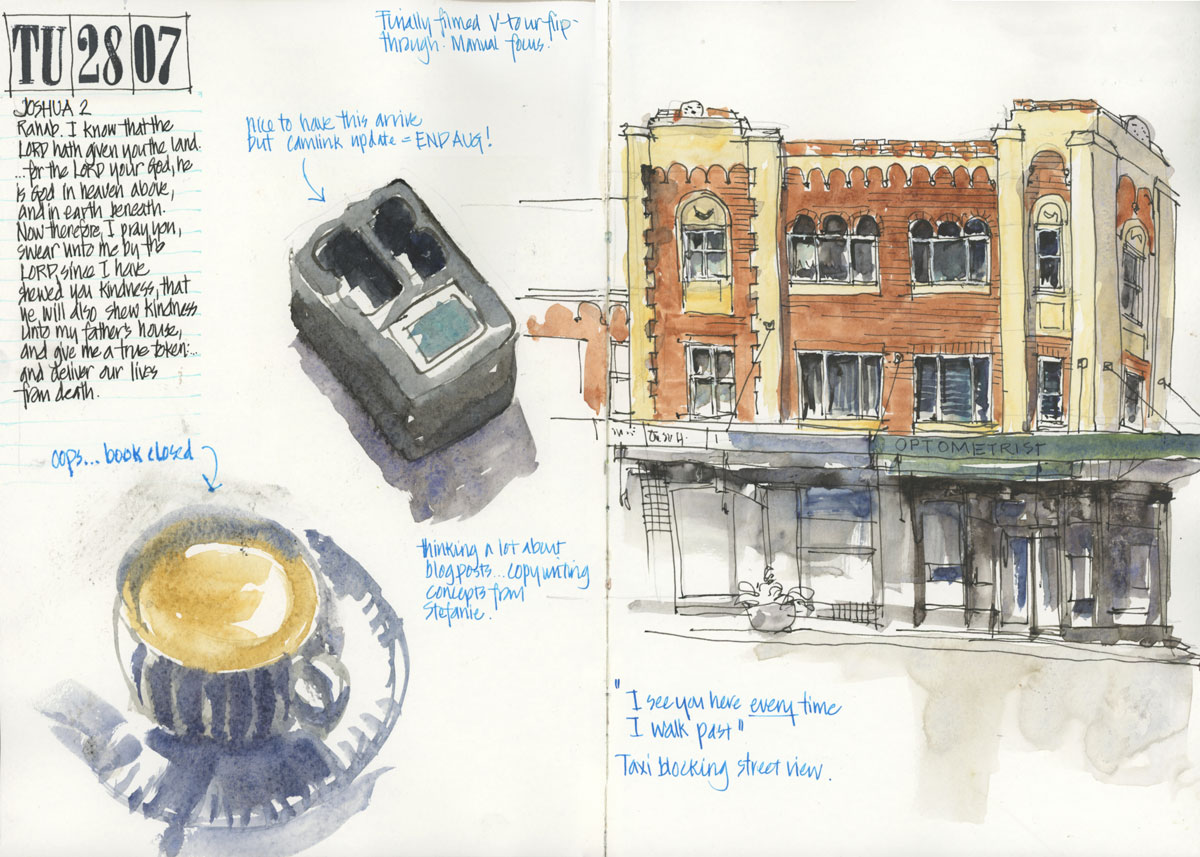 TU 28 07
JOSHUA 2
Rahab. I know that the
LORD hath given you the land.
...for the LORD your God, he
is God in heaven above,
and in earth beneath.
Now therefore, I pray you,
swear unto me by the
LORD, since I have
shewed you kindness, that
ye will also shew kindness
unto my father's house,
and give me a true token:...
and deliver our lives
from death.
Finally filmed V-tour flip-
through. Manual focus.
nice to have this arrive
but camlink update = END AUG!
oops... book closed
thinking a lot about
blog posts... copywriting
concepts from
Stefanie.
OPTOMETRIST
"I see you here every time
I walk past"
Taxi blocking street view.